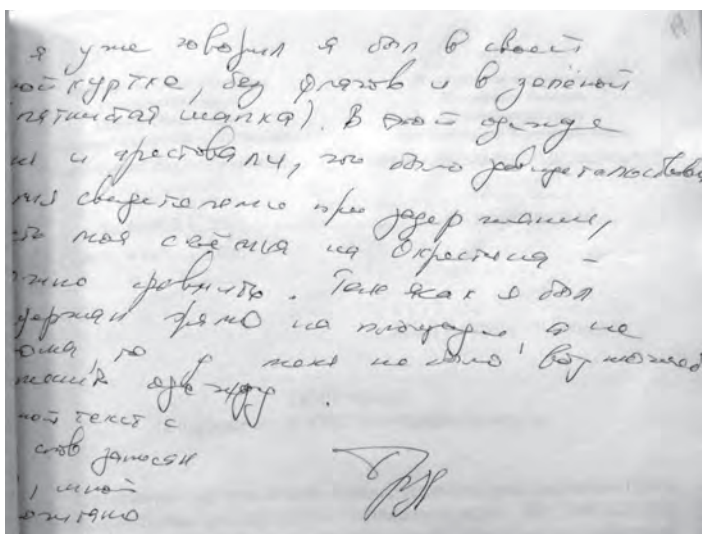 я уже говорил я был в своей
ой куртке, без флагов и в зелёной
пятнистая шапка). В этой одежде
и арестовали, это было
ния свидетелями при задержании,
моя съёмка на Окрестина -
жно сравнить. Так как я был
держан прямо на площади а не
ома, то у меня не было возможн
одежду.
мой текст с
слов записан
мной
очитано